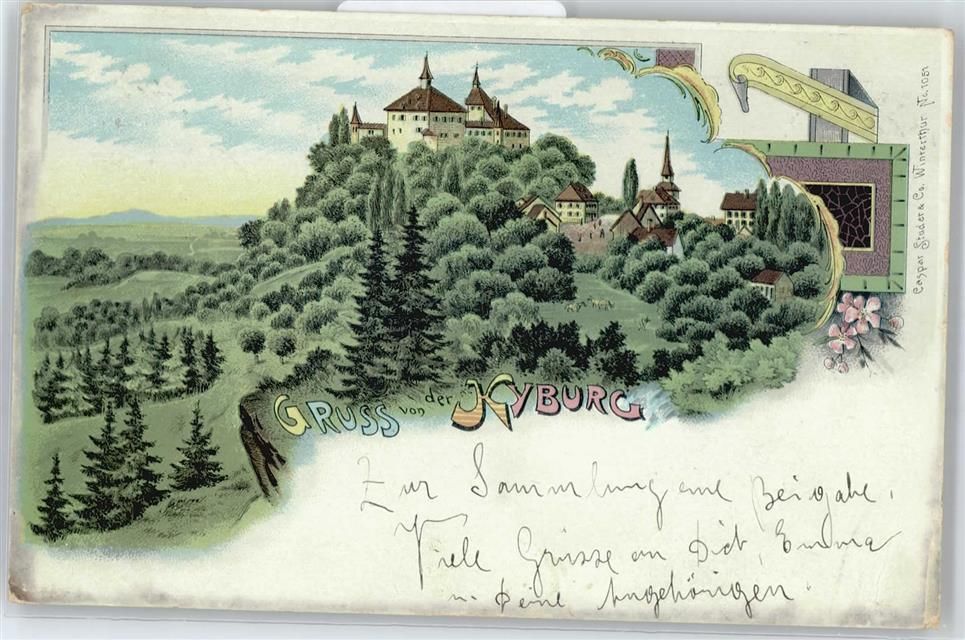 GRUSS von der KYBURG
Caspar Studer & Co. Winterthur No. 1051
Zur Sammlung eine Beigabe.
Viele Grüsse an Dich, Emma
u. Deine Angehörigen.